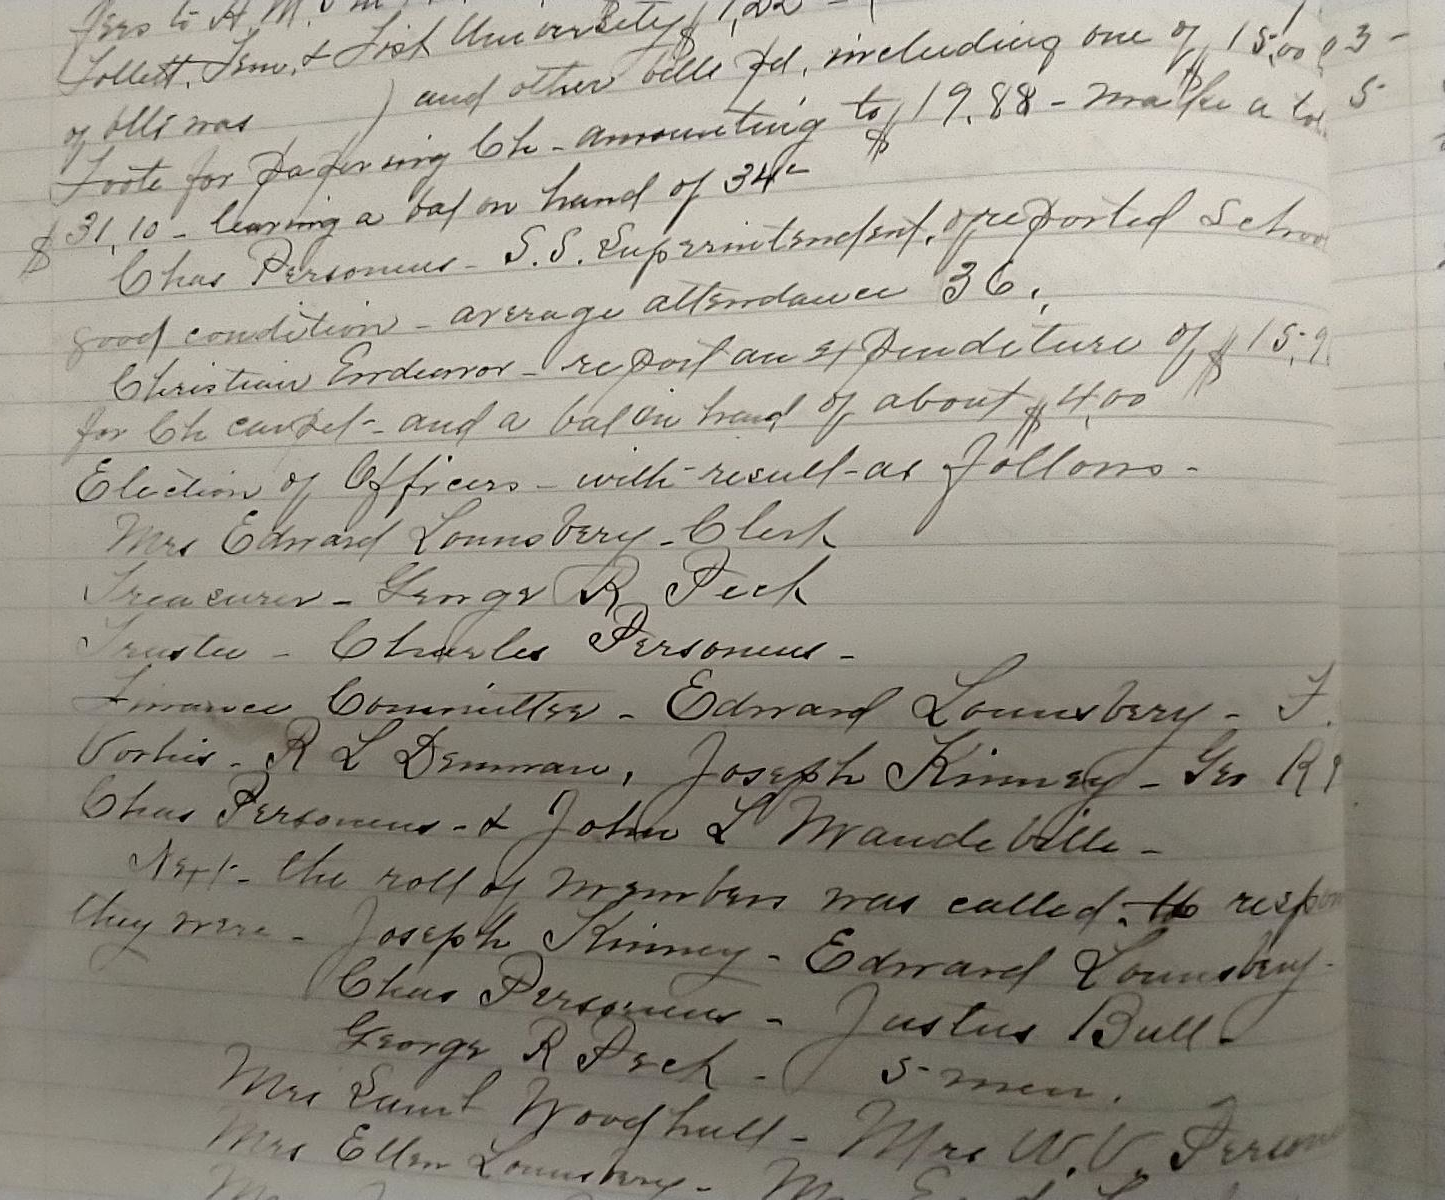 to H.M.
Follett, Tenn. & Fisk University $11,22 -
of Ellis was ) and other bills pd, including one of $15.00
Foote for papering Ch - amounting to $19.88 - make a
$31,10 - leaving a bal on hand of 34c
Chas Personeus - S.S. Superintendent, reported Schoo
good condition - average attendance 36.
Christian Endeavor - report an expenditure of $15.9
for Ch carpet - and a bal on hand of about $4,00
Election of Officers - with result as follows -
Mrs Edward Lounsbery - Clerk
Treasurer - George R Peck
Trustee - Charles Personeus -
Finance Committee - Edward Lounsbery - F.
Vorhis - R L Denman, Joseph Kinney - Geo R P
Chas Personeus - & John L Mandeville -
Next - the roll of members was called. respon
they were - Joseph Kinney - Edward Lounsbery -
Chas Personeus - Justus Bull -
George R Peck - 5 men.
Mrs Saml Woodhull - Mrs W.V. Person
Mrs Ellen Lounsbery -
3 -
5